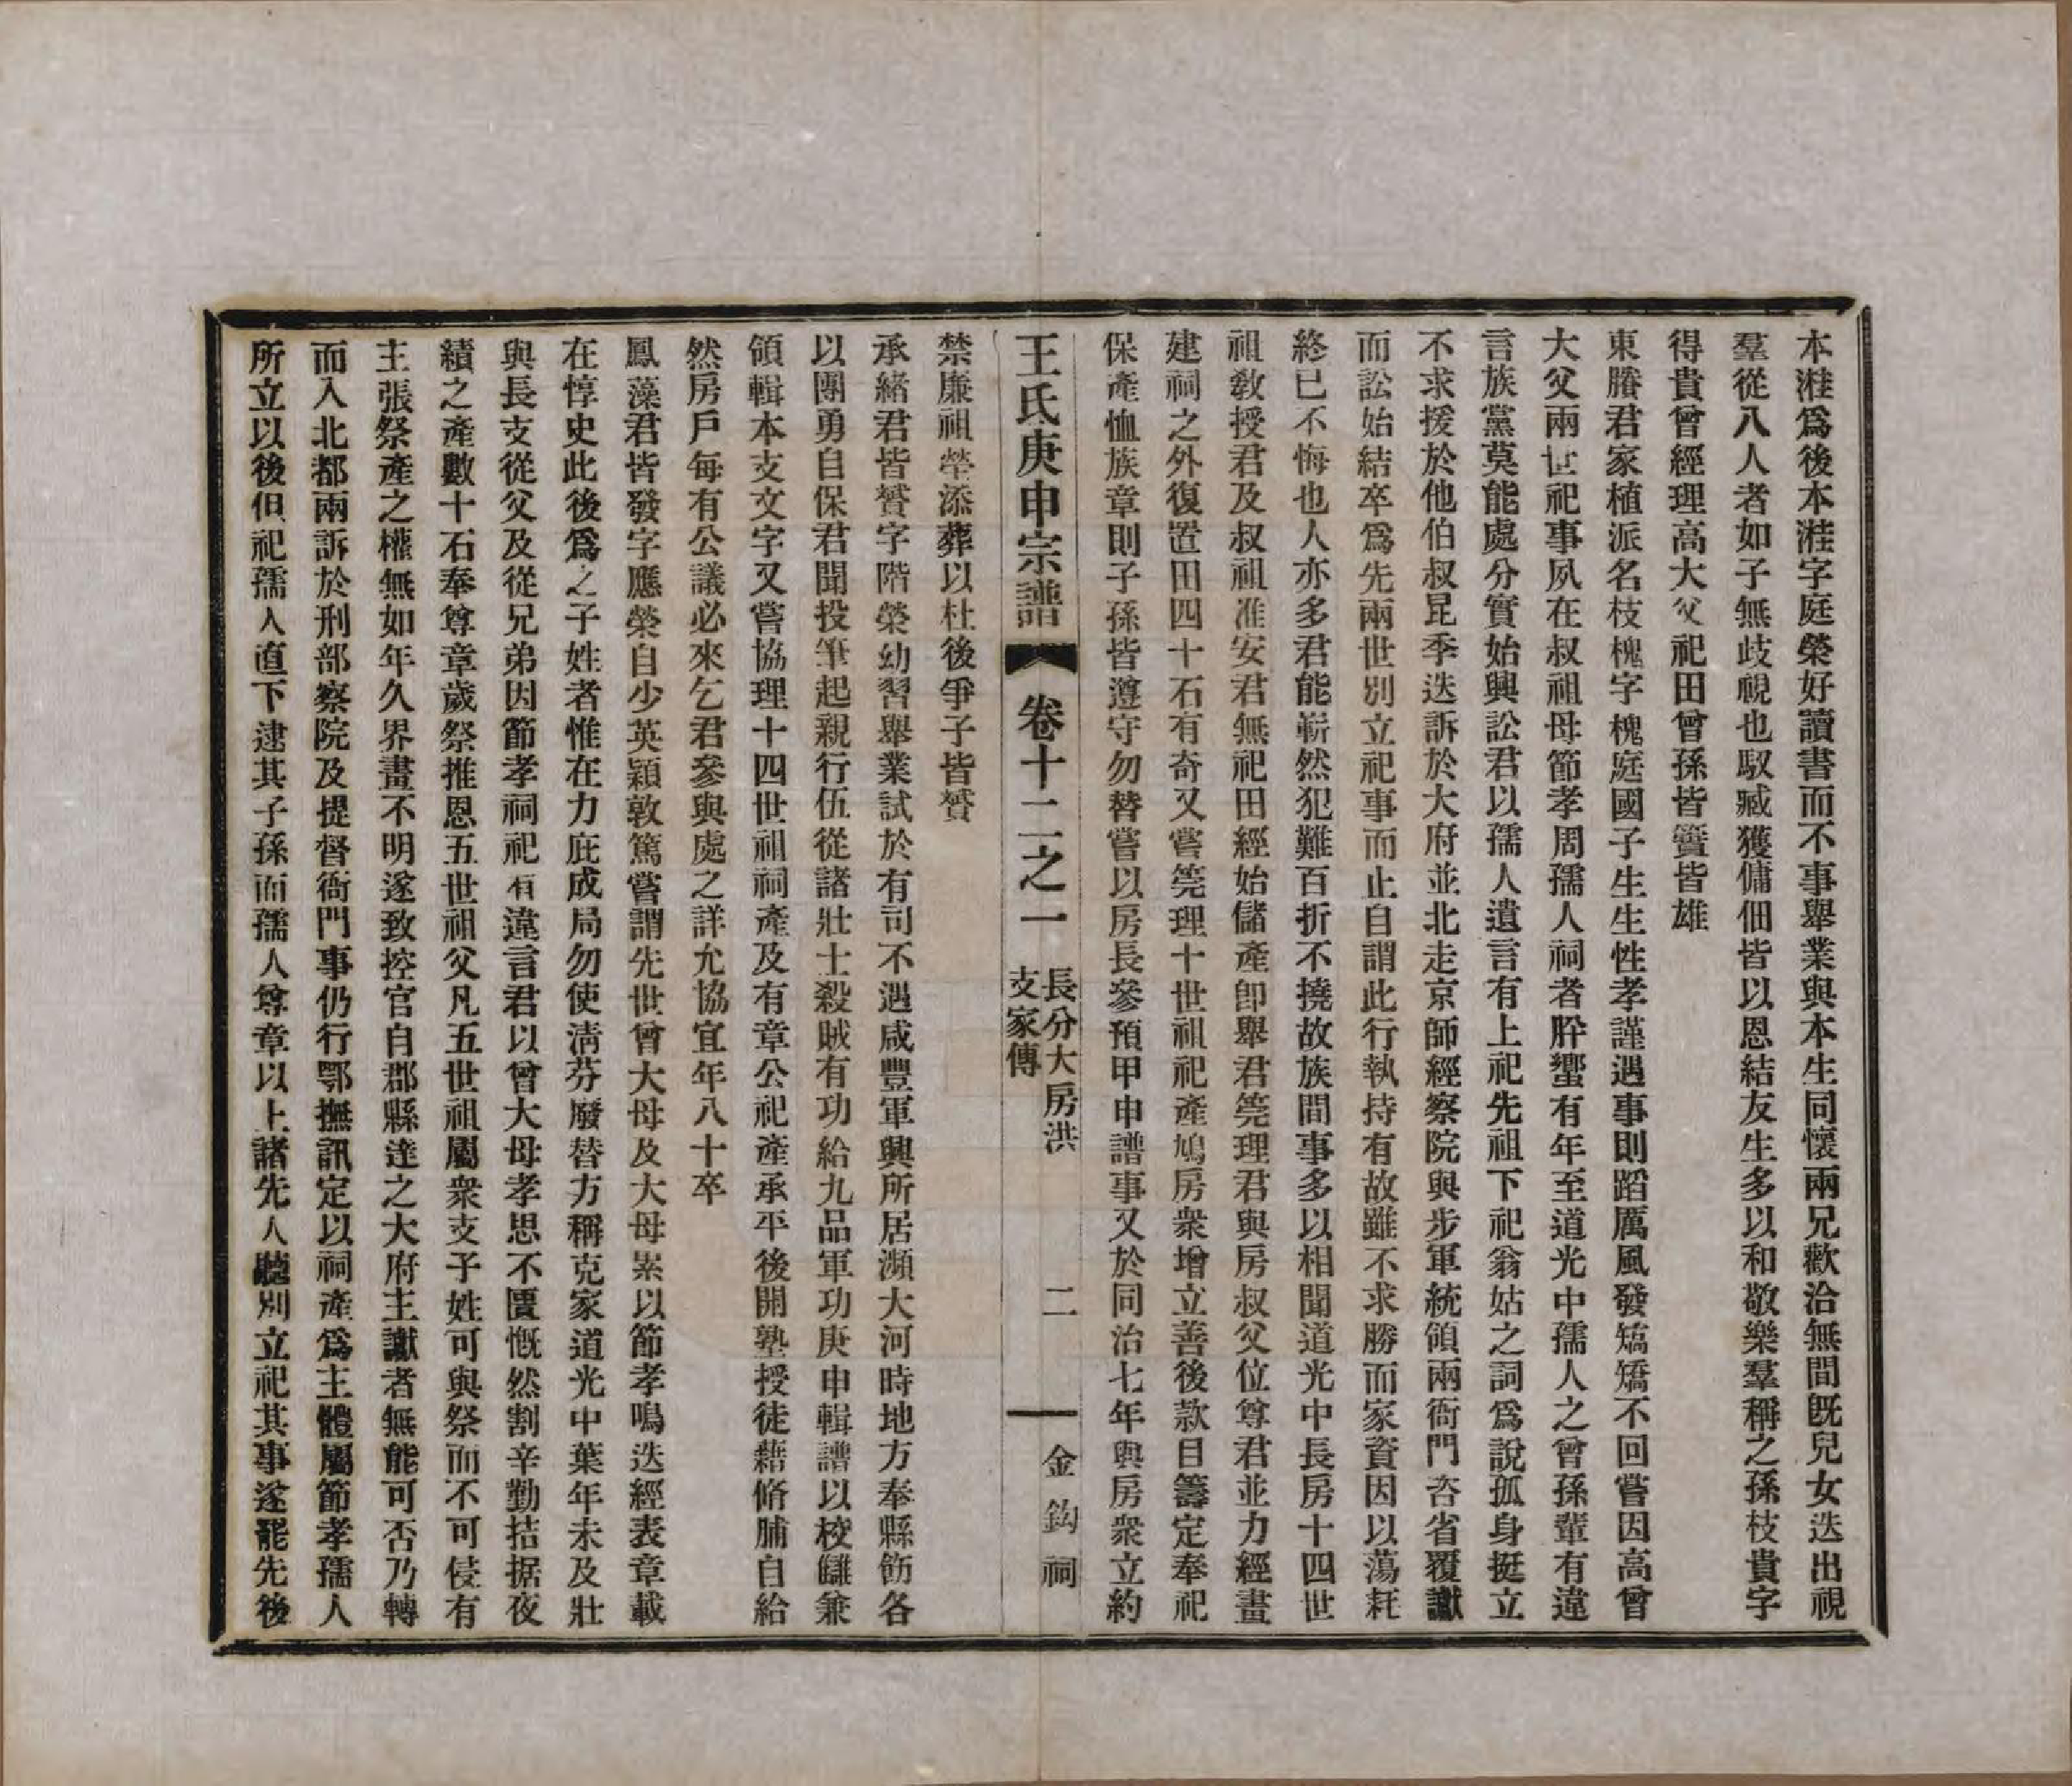 本溎爲後本溎字庭榮好讀書而不事舉業與本生同懷兩兄歡洽無間既兒女迭出視
羣從八人者如子無歧視也馭臧獲傭佃皆以恩結友生多以和敬樂羣稱之孫枝貴字
得貴曾經理高大父祀田曾孫皆簣皆雄
東賸君家植派名枝槐字槐庭國子生生性孝謹遇事則蹈厲風發矯矯不回嘗因高曾
大父兩世祀事夙在叔祖母節孝周孺人祠者肸蠁有年至道光中孺人之曾孫輩有違
言族黨莫能處分實始興訟君以孺人遺言有上祀先祖下祀翁姑之詞爲說孤身挺立
不求援於他伯叔昆季迭訴於大府並北走京師經察院與步軍統領兩衙門咨省覆讞
而訟始結卒爲先兩世別立祀事而止自謂此行執持有故雖不求勝而家資因以蕩耗
終已不悔也人亦多君能嶄然犯難百折不撓故族間事多以相聞道光中長房十四世
祖敎授君及叔祖准安君無祀田經始儲產卽舉君筦理君與房叔父位尊君並力經畫
建祠之外復置田四十石有奇又嘗筦理十世祖祀產鳩房衆增立善後款目籌定奉祀
保產恤族章則子孫皆遵守勿替嘗以房長參預甲申譜事又於同治七年與房衆立約
王氏庚申宗譜 卷十二之一 長分大房洪支家傳 二 金鈎祠
禁廉祖塋添葬以杜後爭子皆贇
承緒君皆贇字階榮幼習舉業試於有司不遇咸豐軍興所居瀕大河時地方奉縣飭各
以團勇自保君聞投筆起親行伍從諸壯士殺賊有功給九品軍功庚申輯譜以校讎兼
領輯本支文字又嘗協理十四世祖祠產及有章公祀產承平後開塾授徒藉脩脯自給
然房戶每有公議必來乞君參與處之詳允協宜年八十卒
鳳藻君皆發字應榮自少英穎敦篤嘗謂先世曾大母及大母累以節孝鳴迭經表章載
在惇史此後爲之子姓者惟在力庇成局勿使淸芬廢替方稱克家道光中葉年未及壯
與長支從父及從兄弟因節孝祠祀有違言君以曾大母孝思不匱慨然割辛勤拮据夜
績之產數十石奉尊章歲祭推恩五世祖父凡五世祖屬衆支子姓可與祭而不可侵有
主張祭產之權無如年久界畫不明遂致控官自郡縣達之大府主讞者無能可否乃轉
而入北都兩訴於刑部察院及提督衙門事仍行鄂撫訊定以祠產爲主體屬節孝孺人
所立以後但祀孺人直下逮其子孫而孺人尊章以上諸先人聽別立祀其事遂罷先後